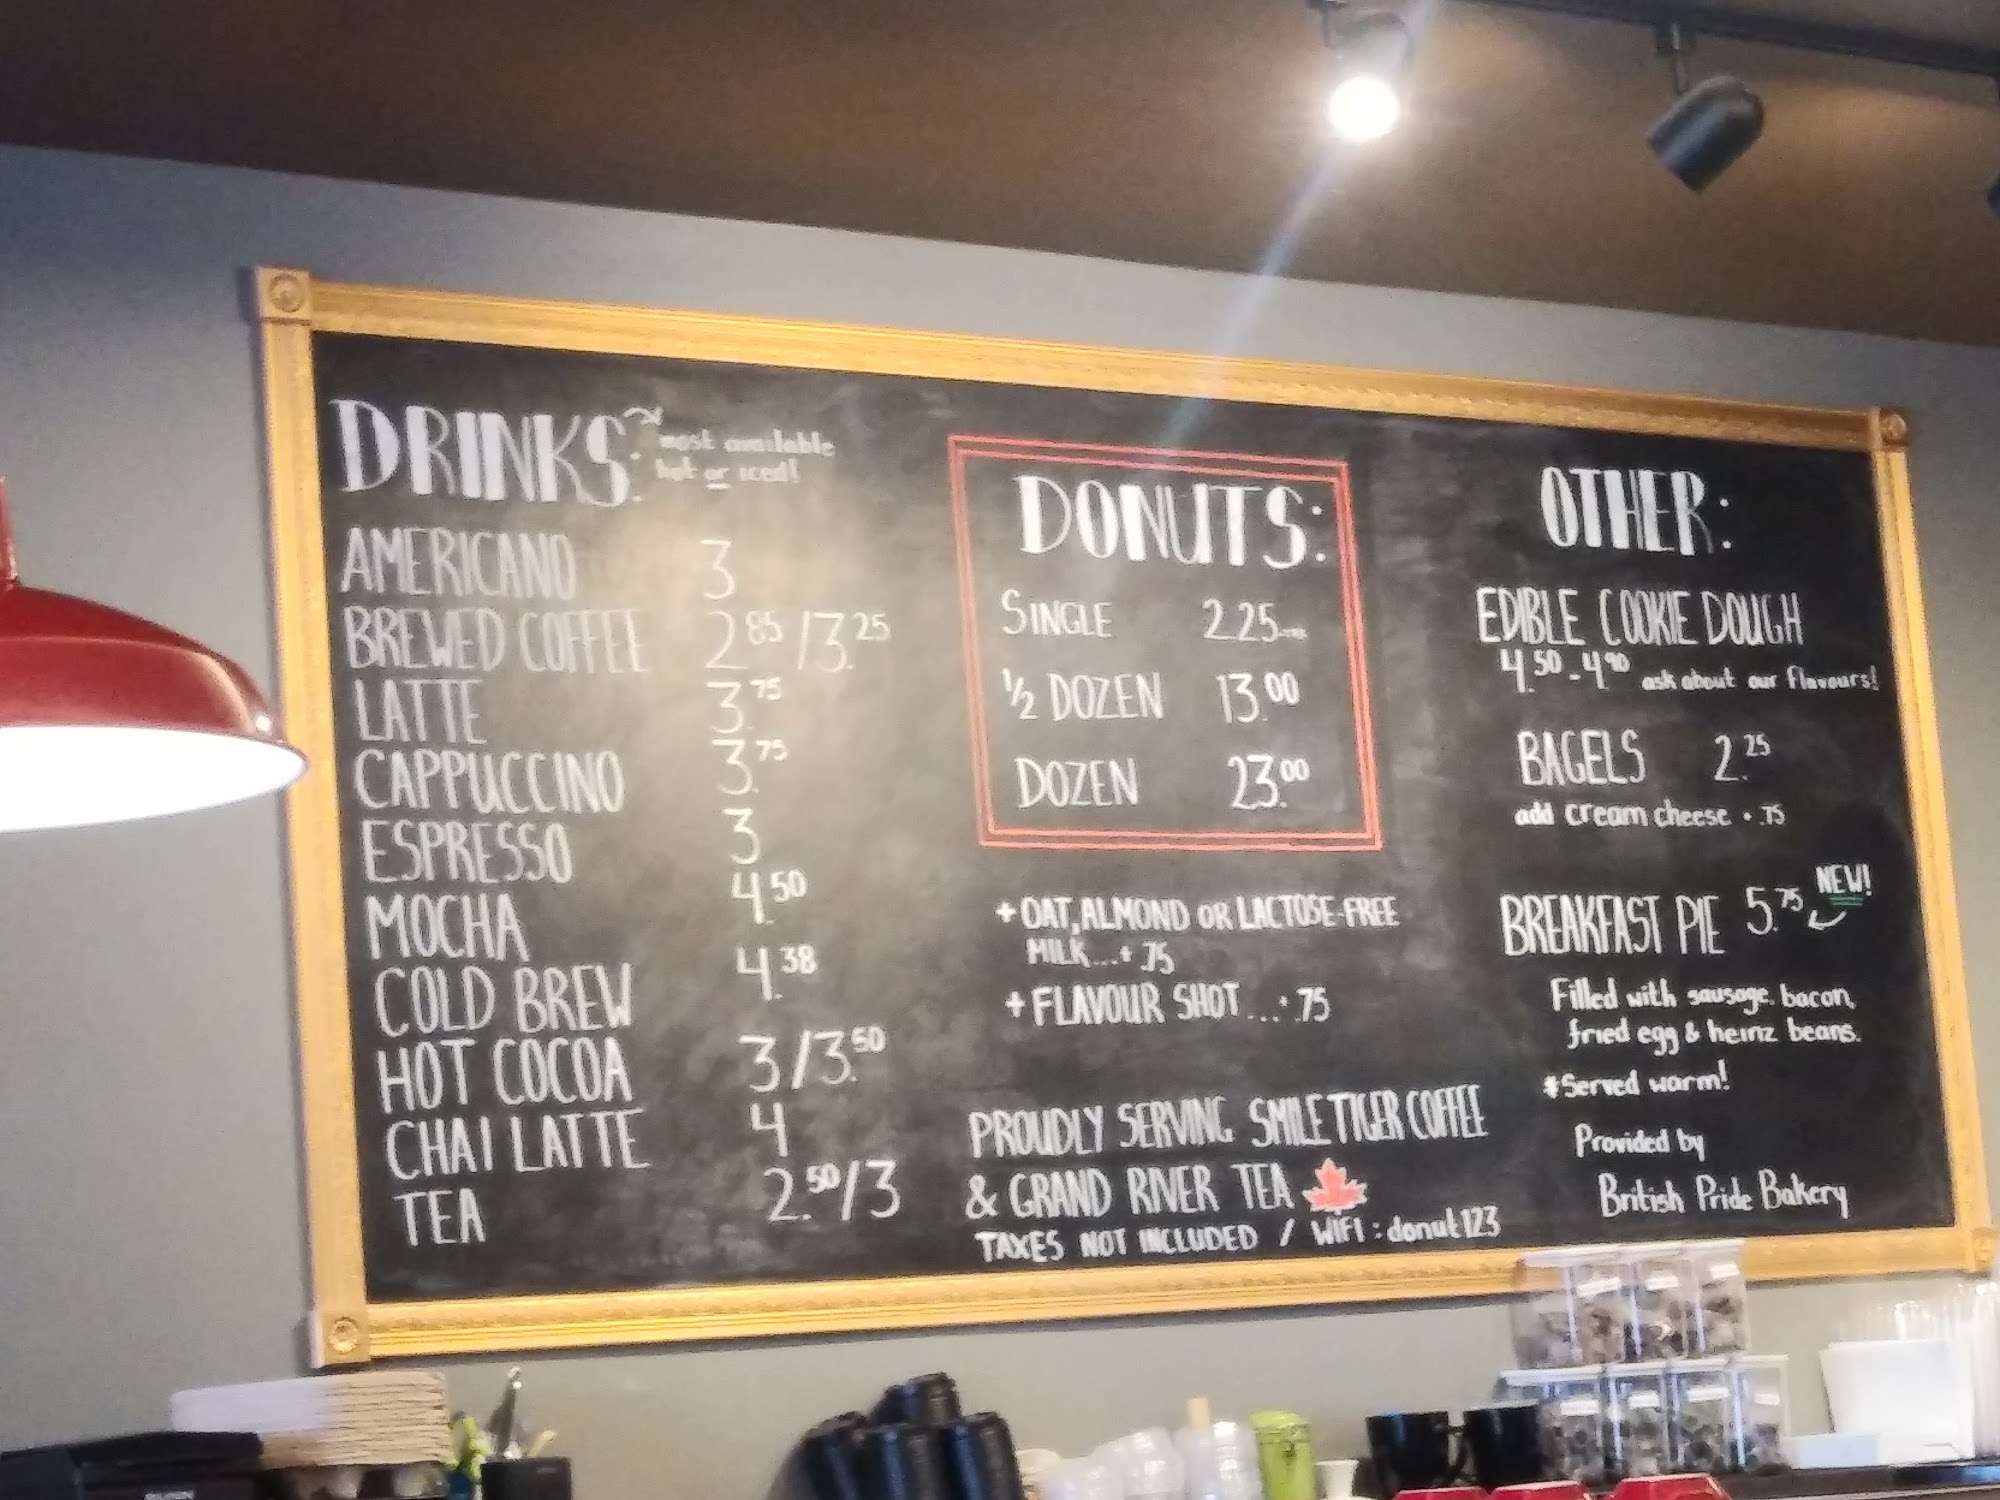 DRINKS: most available
hot or iced!
AMERICANO 3
BREWED COFFEE 2.85 / 3.25
LATTE 3.75
CAPPUCCINO 3.75
ESPRESSO 3
MOCHA 4.50
COLD BREW 4.38
HOT COCOA 3 / 3.50
CHAI LATTE 4
TEA 2.50 / 3
DONUTS:
SINGLE 2.25
1/2 DOZEN 13.00
DOZEN 23.00
+ OAT, ALMOND OR LACTOSE-FREE
MILK...+ .75
+ FLAVOUR SHOT...+ .75
PROUDLY SERVING SMILE TIGER COFFEE
& GRAND RIVER TEA
TAXES NOT INCLUDED / WIFI: donut123
OTHER:
EDIBLE COOKIE DOUGH
4.50 - 4.90 ask about our flavours!
BAGELS 2.25
add cream cheese + .75
NEW!
BREAKFAST PIE 5.75
Filled with sausage, bacon,
fried egg & heinz beans.
*Served warm!
Provided by
British Pride Bakery